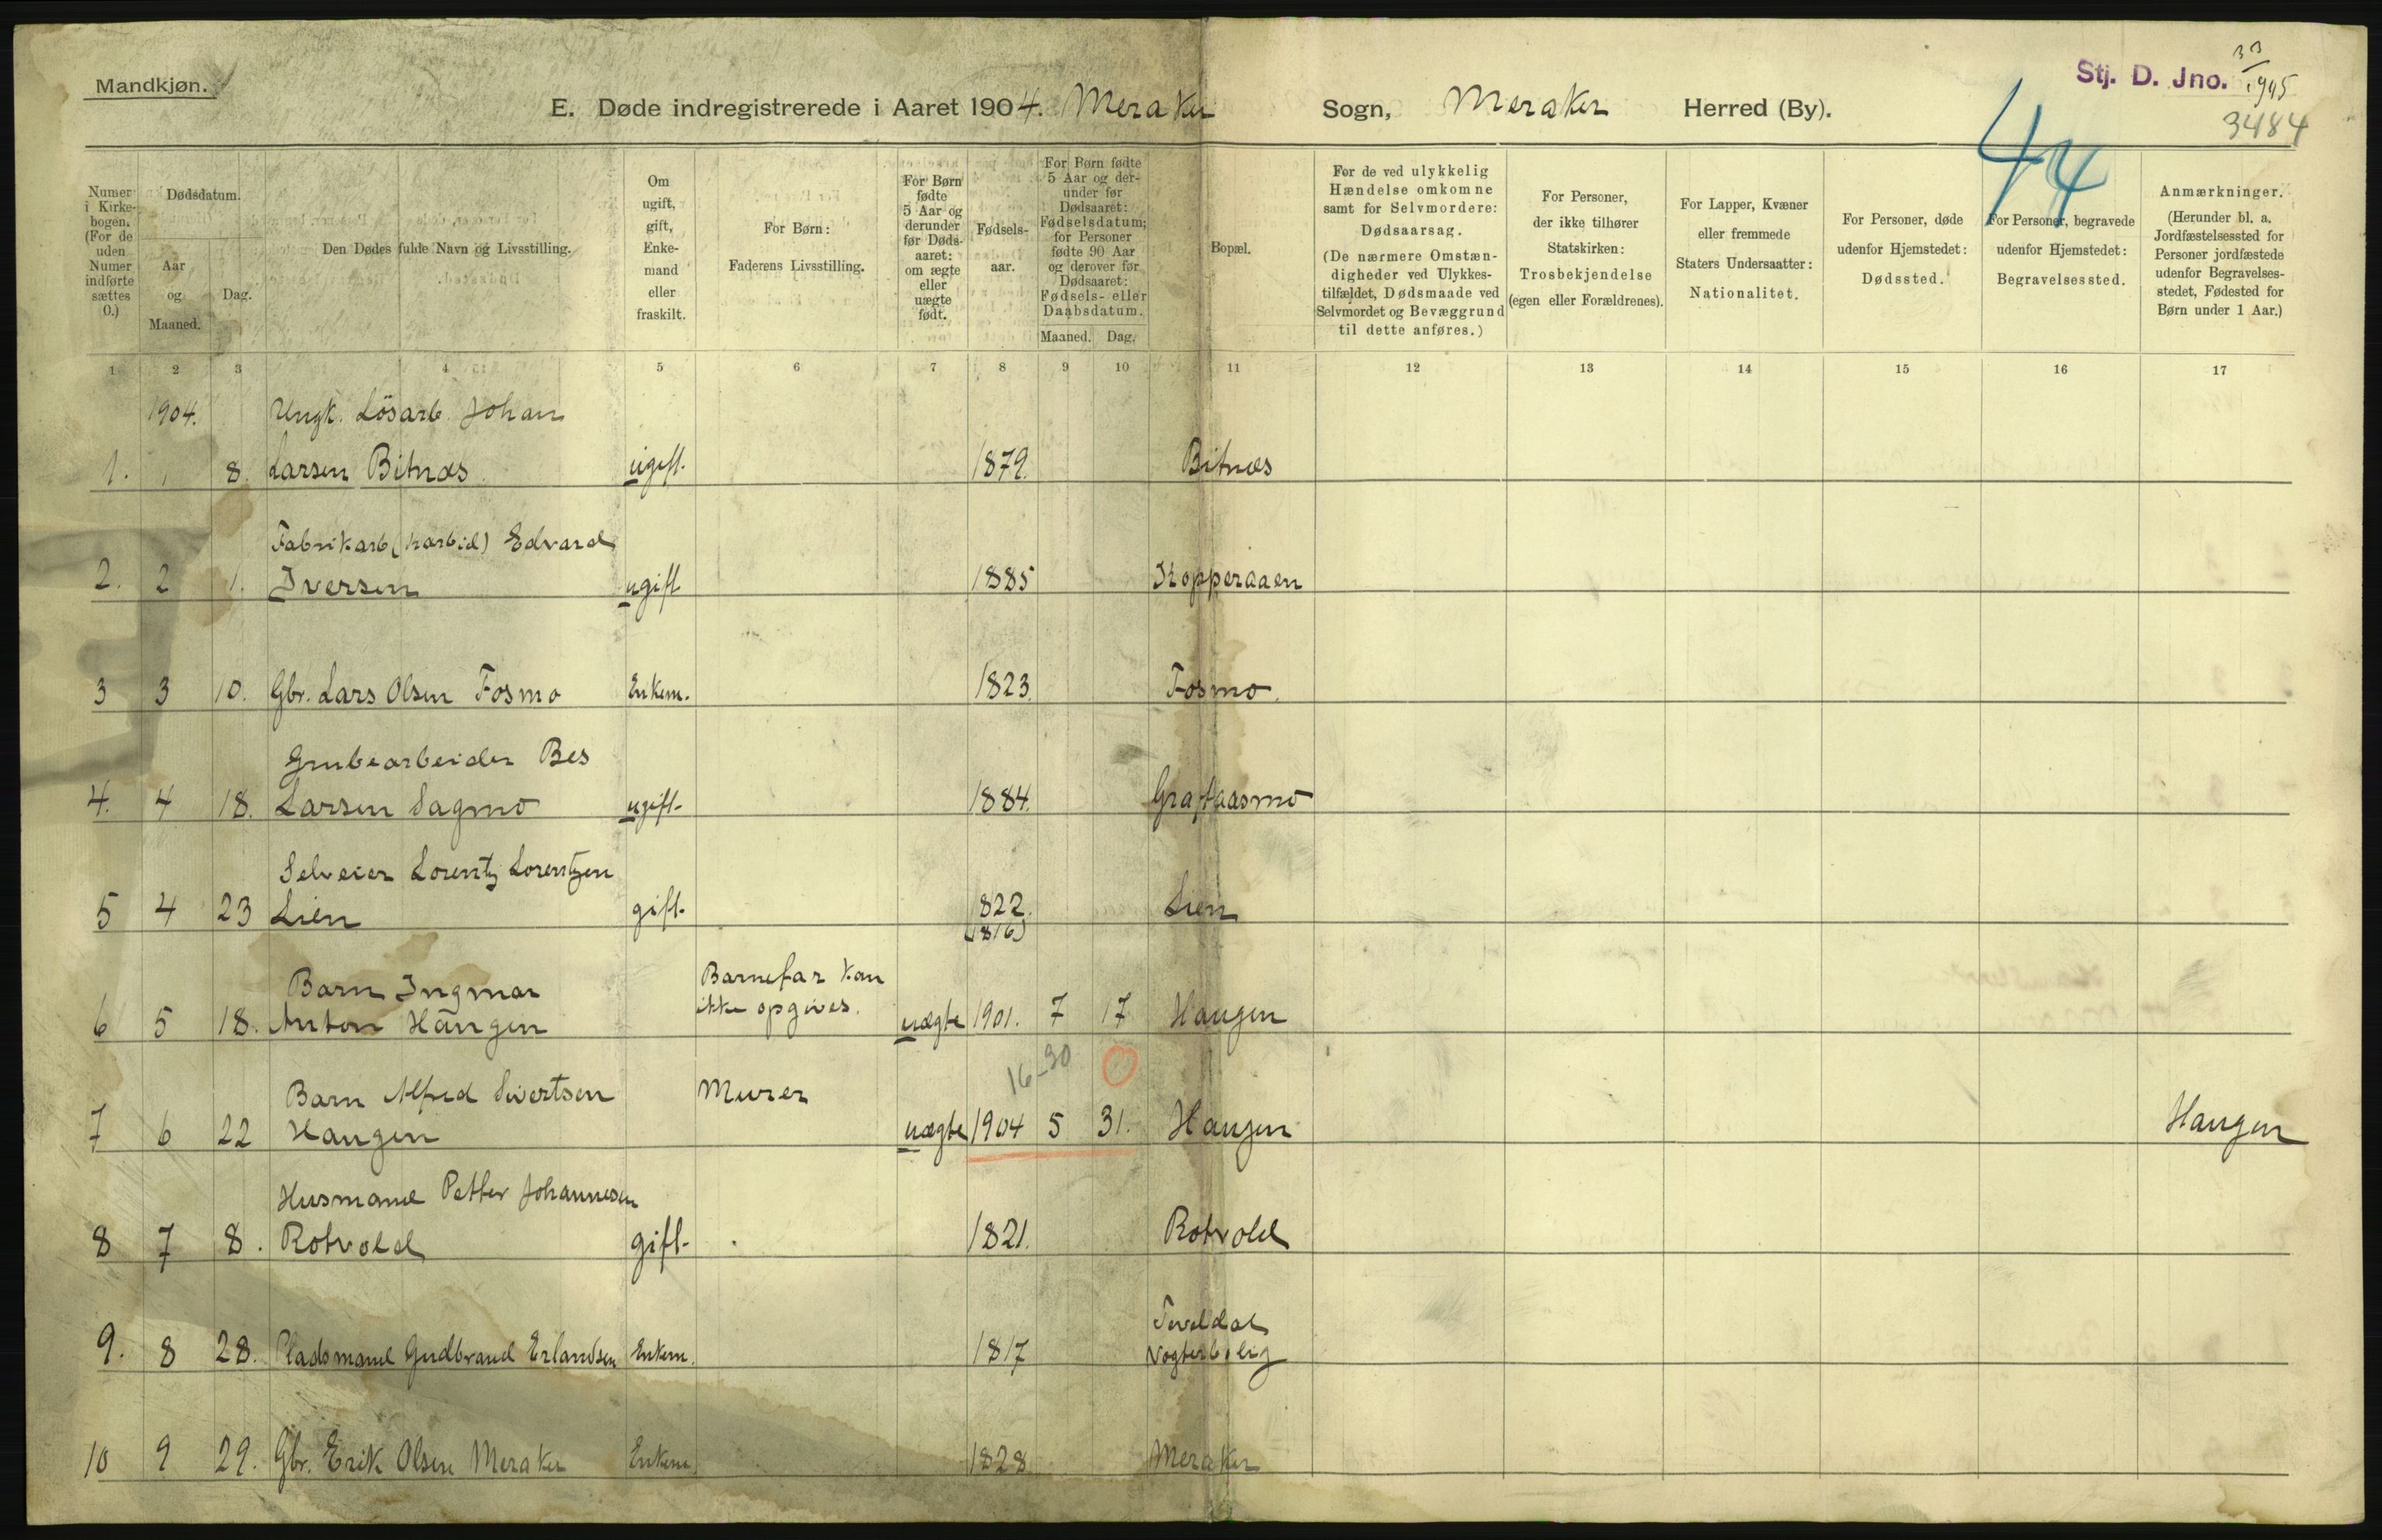 Mandkjøn.
Stj. D. Jno. 33/1905
3484
E. Døde indregistrerede i Aaret 1904. Meraker Sogn, Meraker Herred (By).
44
Numer i Kirkebogen. (For de uden Numer indførte sættes 0.)
Dødsdatum.
Aar og Maaned.
Dag.
Den Dødes fulde Navn og Livsstilling.
Om ugift, gift, Enkemand eller fraskilt.
For Børn: Faderens Livsstilling.
For Børn fødte 5 Aar og derunder før Dødsaaret: om ægte eller uægte født.
Fødselsaar.
For Børn fødte 5 Aar og derunder før Dødsaaret: Fødselsdatum; for Personer fødte 90 Aar og derover før Dødsaaret: Fødsels- eller Daabsdatum.
Maaned. Dag.
Bopæl.
For de ved ulykkelig Hændelse omkomne samt for Selvmordere: Dødsaarsag.
(De nærmere Omstændigheder ved Ulykkestilfældet, Dødsmaade ved Selvmordet og Bevæggrund til dette anføres.)
For Personer, der ikke tilhører Statskirken: Trosbekjendelse (egen eller Forældrenes).
For Lapper, Kvæner eller fremmede Staters Undersaatter: Nationalitet.
For Personer, døde udenfor Hjemstedet: Dødssted.
For Personer, begravede udenfor Hjemstedet: Begravelsessted.
Anmærkninger.
(Herunder bl. a. Jordfæstelsessted for Personer jordfæstede udenfor Begravelsesstedet, Fødested for Børn under 1 Aar.)
1 2 3 4 5 6 7 8 9 10 11 12 13 14 15 16 17
1904. Ungk. Lösarb. Johan
1. 1 8. Larsen Bitnæs ugift. 1879. Bitnæs
Fabrikarb (karbid) Edvard
2. 2 1. Iversen ugift 1885 Kopperaaen
3 3 10. Gbr. Lars Olsen Fosmo Enkem. 1823. Fosmo.
Grubearbeider Bes
4. 4 18. Larsen Sagmo ugift. 1884. Graftaasmo
Selveier Lorentz Lorentzen
5 4 23 Lien gift. 1822. Lien
(1816)
Barn Ingmar Barnefar kan
6 5 18. Anton Haugen ikke opgives. uægte 1901. 7 17 Haugen
16-30
Barn Alfred Sivertsen Murer
7 6 22 Haugen uægte 1904 5 31. Haugen Haugen
Husmand Petter Johannesen
8 7 8. Rotvold gift. 1821. Rotvold
Teveldal
9. 8 28. Pladsmand Gudbrand Erlandsen Enkem. 1817 Vogterbolig
10 9 29. Gbr. Erik Olsen Meraker Enkem. 1828 Meraker